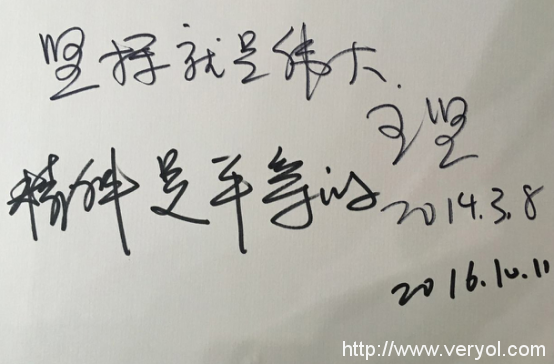 坚持就是伟大.
王坚
精神是平等的
2014.3.8
2016.10.11
http://www.veryol.com